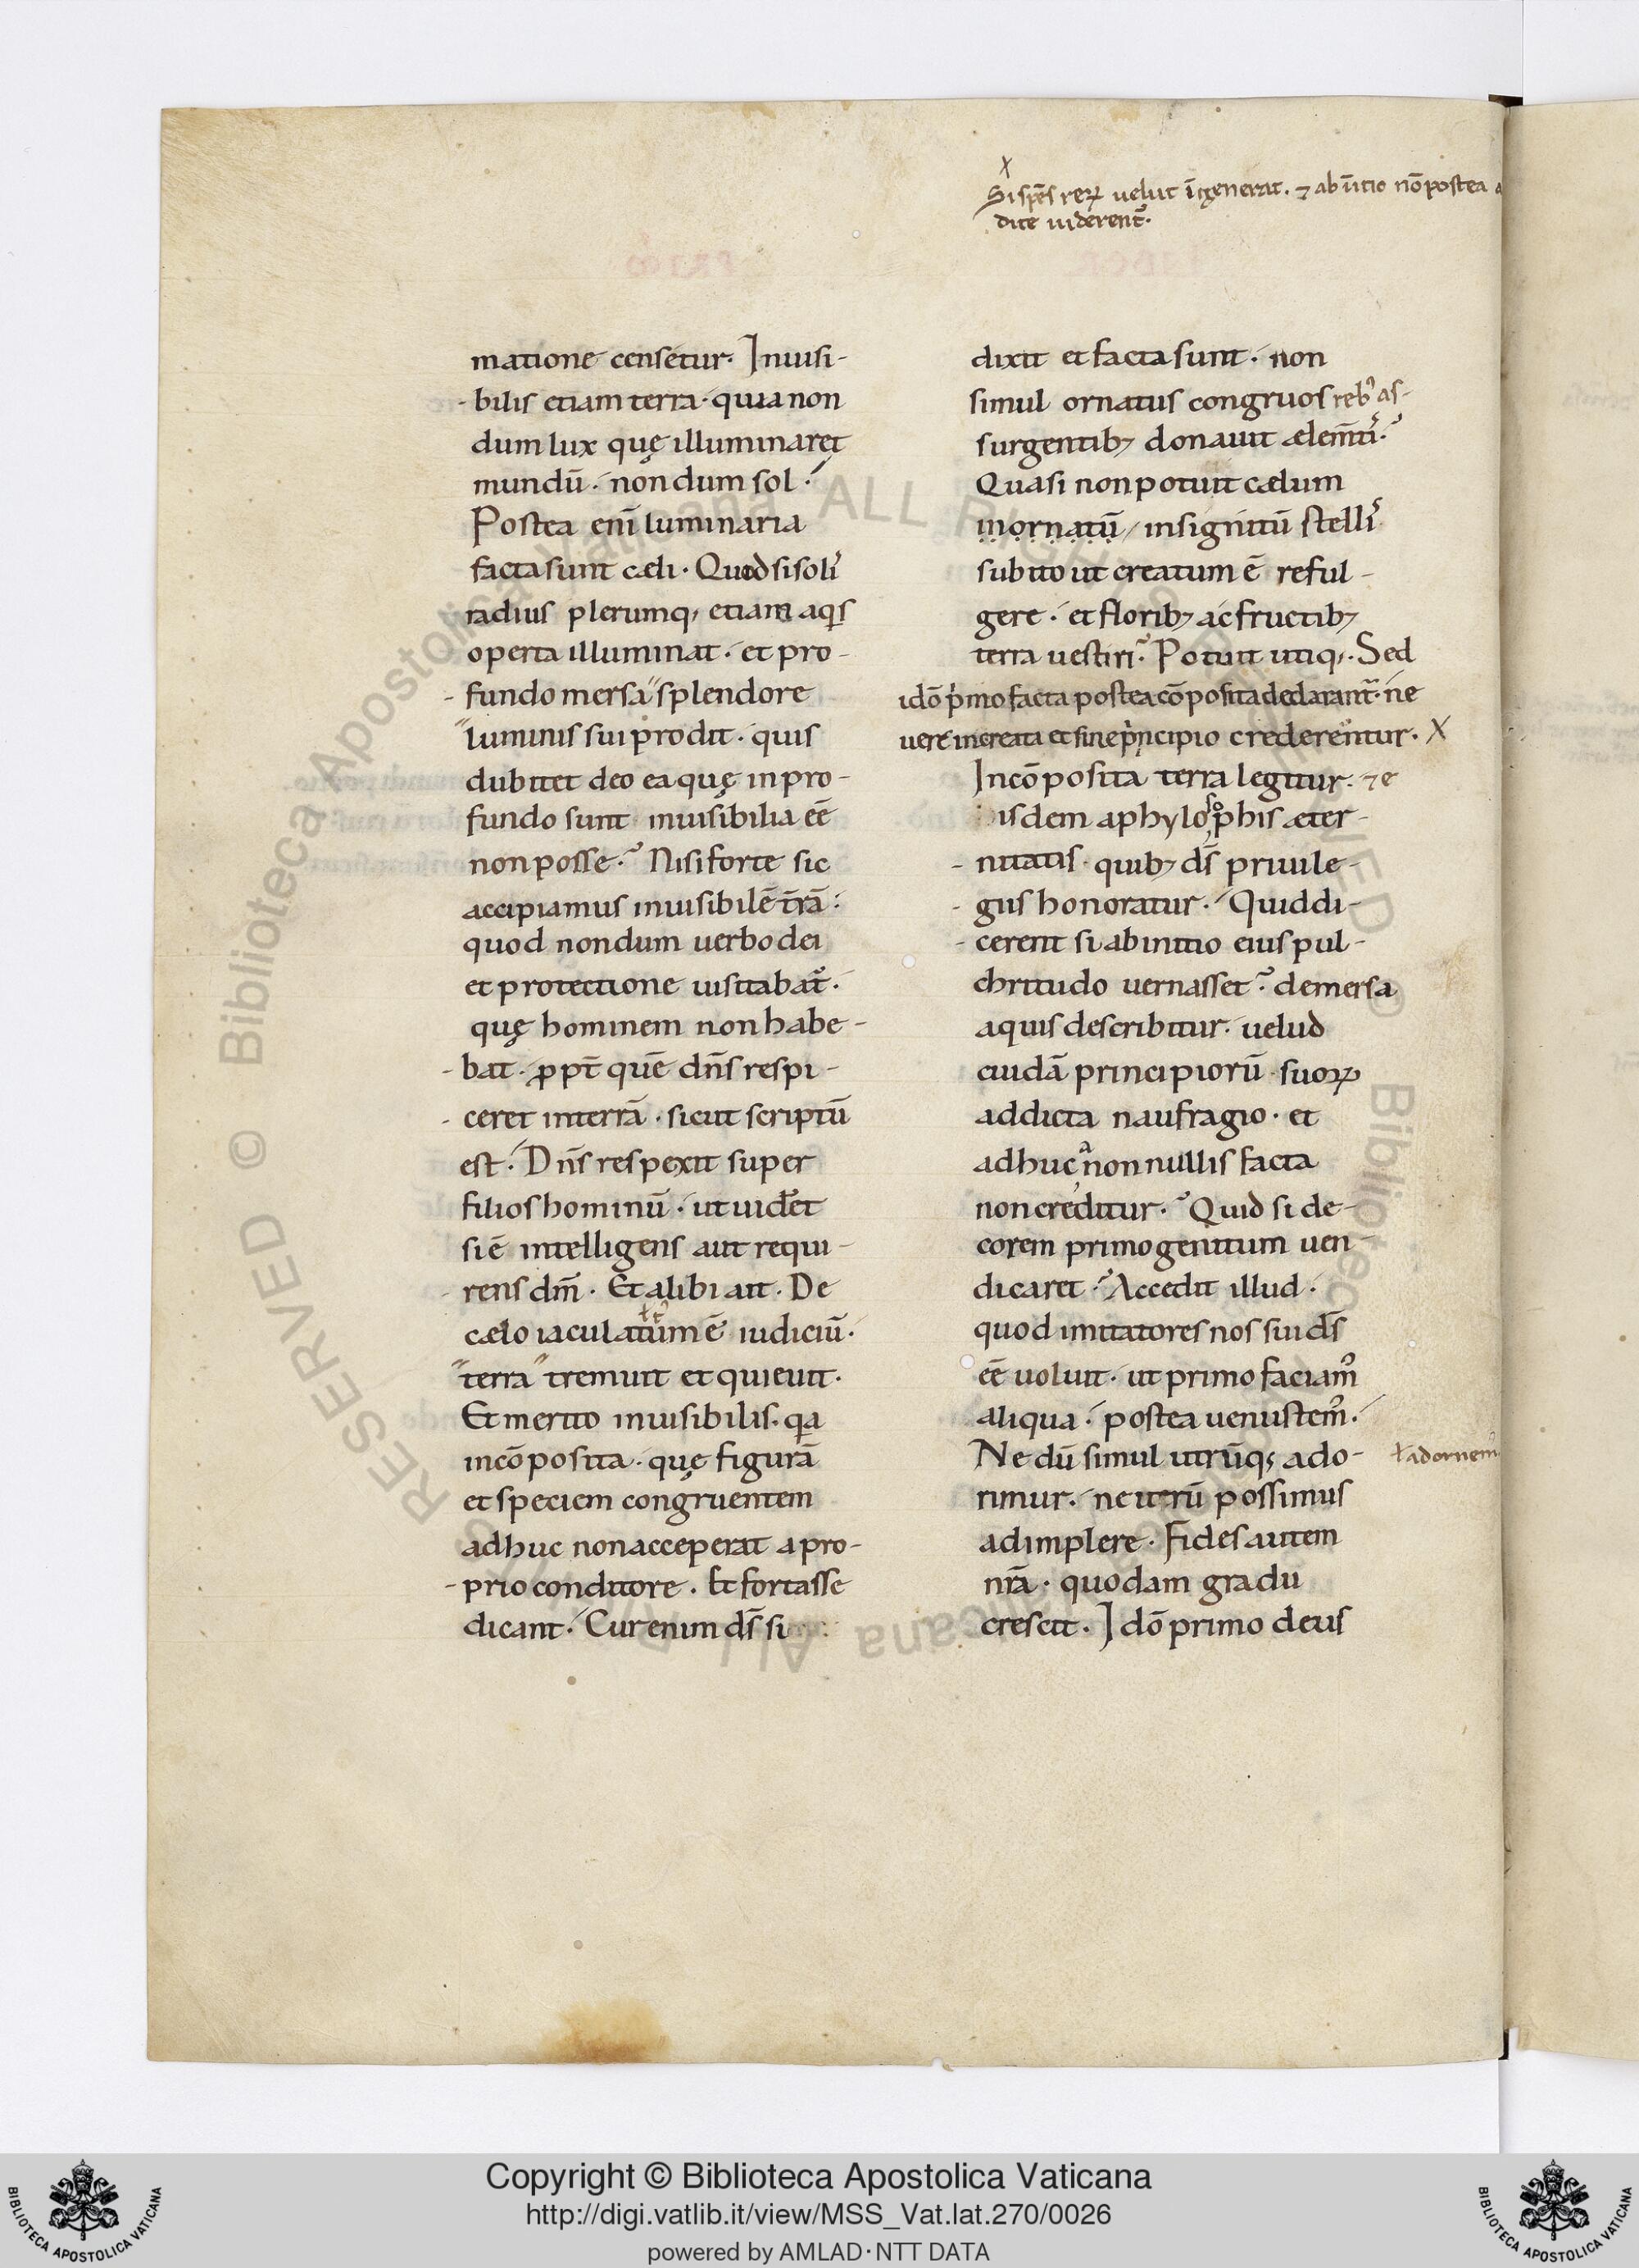 X
Si spēs reꝝ uelut īgenerat. ⁊ ab ītio nō postea
dite uiderent᷑.
matione censetur. Inuisi-
bilis etiam terra. quia non
dum lux quę illuminaret
mundū. nondum sol.
Postea enī luminaria
facta sunt cæli. Quod si soli᾽
radius plerumq; etiam aqis
operta illuminat. et pro-
fundo mersa splendore
luminis sui prodit. quis
dubitet deo ea quę in pro-
fundo sunt inuisibilia eē
non posse. Nisi forte sic
accipiamus inuisibilē t̄rā.
quod nondum uerbo dei
et protectione uisitabat᷑.
quę hominem non habe-
bat. ꝓpt̄ quē dn̄s respi-
ceret in terrā. sicut scriptū
est. Dn̄s respexit super
filios hominū. ut uidet
si ē intelligens aut requi-
rens dm̄. Et alibi ait. De
cælo iaculatum ē iudiciū.
terra tremuit et quieuit.
Et merito inuisibilis. qa
incōposita. quę figurā
et speciem congruentem
adhuc non acceperat a pro-
prio conditore. Et fortasse
dicant. Cur enim ds̄ si
dixit et facta sunt. non
simul ornatus congruos reb᾽ as-
surgentib; donauit ælem̄ti᾽.
Quasi non potuit cælum
inornatū insignitū stelli᾽
subito ut creatum ē reful-
gere. et florib; ac fructib;
terra uestiri. Potuit utiq;. Sed
idō pͥmo facta postea cōposita declarant᷑. ne
uere increata et sine pͥncipio crederentur. X
Incōposita terra legitur. ⁊ e
isdem a phylosophis æter-
nitatis quib; ds̄ priuile-
giis honoratur. Quid di-
cerent si ab initio eius pul-
chritudo uernasset. demersa
aquis describitur. uelud
cuidā principiorū suoꝝ
addicta naufragio. et
adhuc a nonnullis facta
non creditur. Quid si de-
corem primogenitum uen-
dicaret. Accedit illud.
quod imitatores nos sui ds̄
eē uoluit. ut primo faciam᾽
aliqua. postea uenustem᾽.
Ne dū simul utrūq; ado-
ł adornem᾽
rimur. neuterū possimus
adimplere. Fides autem
nr̄a. quodam gradu
crescit. Idō primo deus
Copyright © Biblioteca Apostolica Vaticana
http://digi.vatlib.it/view/MSS_Vat.lat.270/0026
powered by AMLAD·NTT DATA
BIBLIOTECA APOSTOLICA VATICANA
BIBLIOTECA APOSTOLICA VATICANA